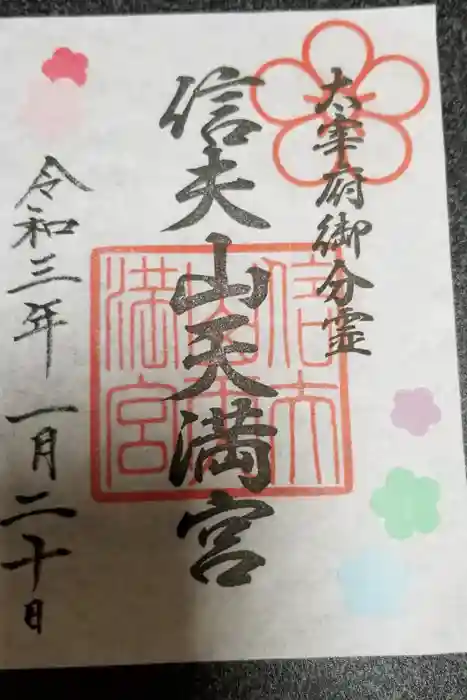 太宰府御分霊
信夫山天満宮
令和三年一月二十日
信夫
山天
満宮